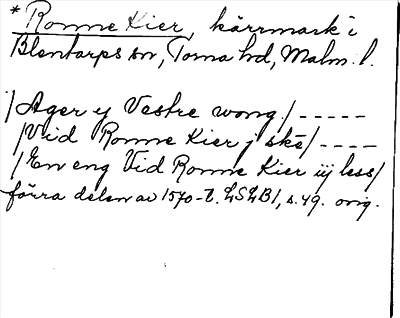 *Ronne Kier, kärrmark i
Blentarps sn, Torna hd, Malm. l.
/Ager ij Vestre wong./-----
/Vid Ronne Kier j skě/----
/En eng Vid Ronne Kier iij less/
förra delen av 1570-t. LSLB1, s. 49. orig.